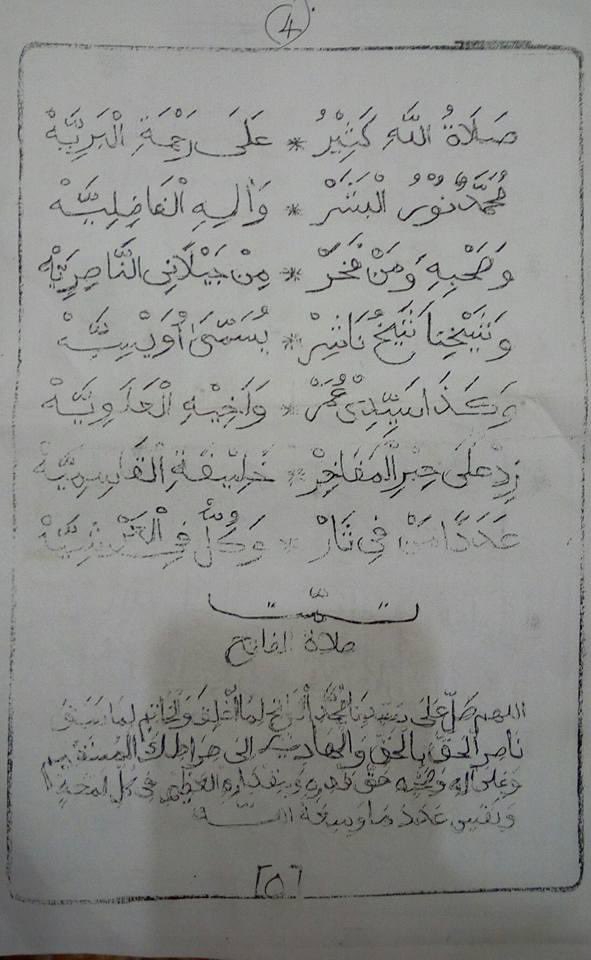 4
صَلَاةُ اللَّهِ كَثِيْرُ * عَلَى رَحْمَةِ الْبَرِيَّهْ
مُحَمَّدٌ نُوْرُ الْبَشَرْ * وَآلِهِ الْفَاضِلِيَّهْ
وَصَحْبِهِ وَمَنْ فَخَرْ * مِنْ جَيْلَانِى النَّاصِرِيَّهْ
وَشَيْخِنَا شَيْخُ نَاشِرْ * يُسَمَّى أُوَيْسِيَّهْ
وَكَذَا سَيِّدِىْ عُمَرْ * وَأَخِيْهِ الْعَلَوِيَّهْ
زِدْ عَلَى حِبْرِ الْمَفَاخِرْ * خَلِيْفَةِ الْقَاسِمِيَّهْ
عَدَدًا مَنْ فِي * وَكُلٌّ فِى
تمت
صلاة الفاتح
اللهم صَلِّ عَلَى سَيِّدِنَا مُحَمَّدٍ الْفَاتِحِ لِمَا أُغْلِقَ وَالْخَاتِمِ لِمَا سَبَقَ
نَاصِرِ الْحَقِّ بِالْحَقِّ وَالْهَادِي إلى صِرَاطِكَ الْمُسْتَقِيمِ
وَعَلَى آلِهِ وَصَحْبِهِ حَقَّ قَدْرِهِ وَمِقْدَارِهِ الْعَظِيمِ فِى كُلِّ لَمْحَةٍ
وَنَفَسٍ عَدَدَ مَا وَسِعَهُ
[٥]